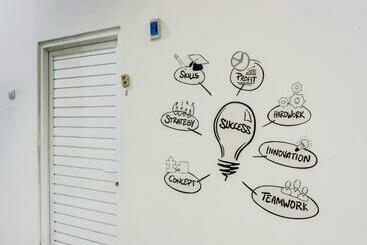 SKILLS
PROFIT
STRATEGY
SUCCESS
HARDWORK
INNOVATION
CONCEPT
TEAMWORK